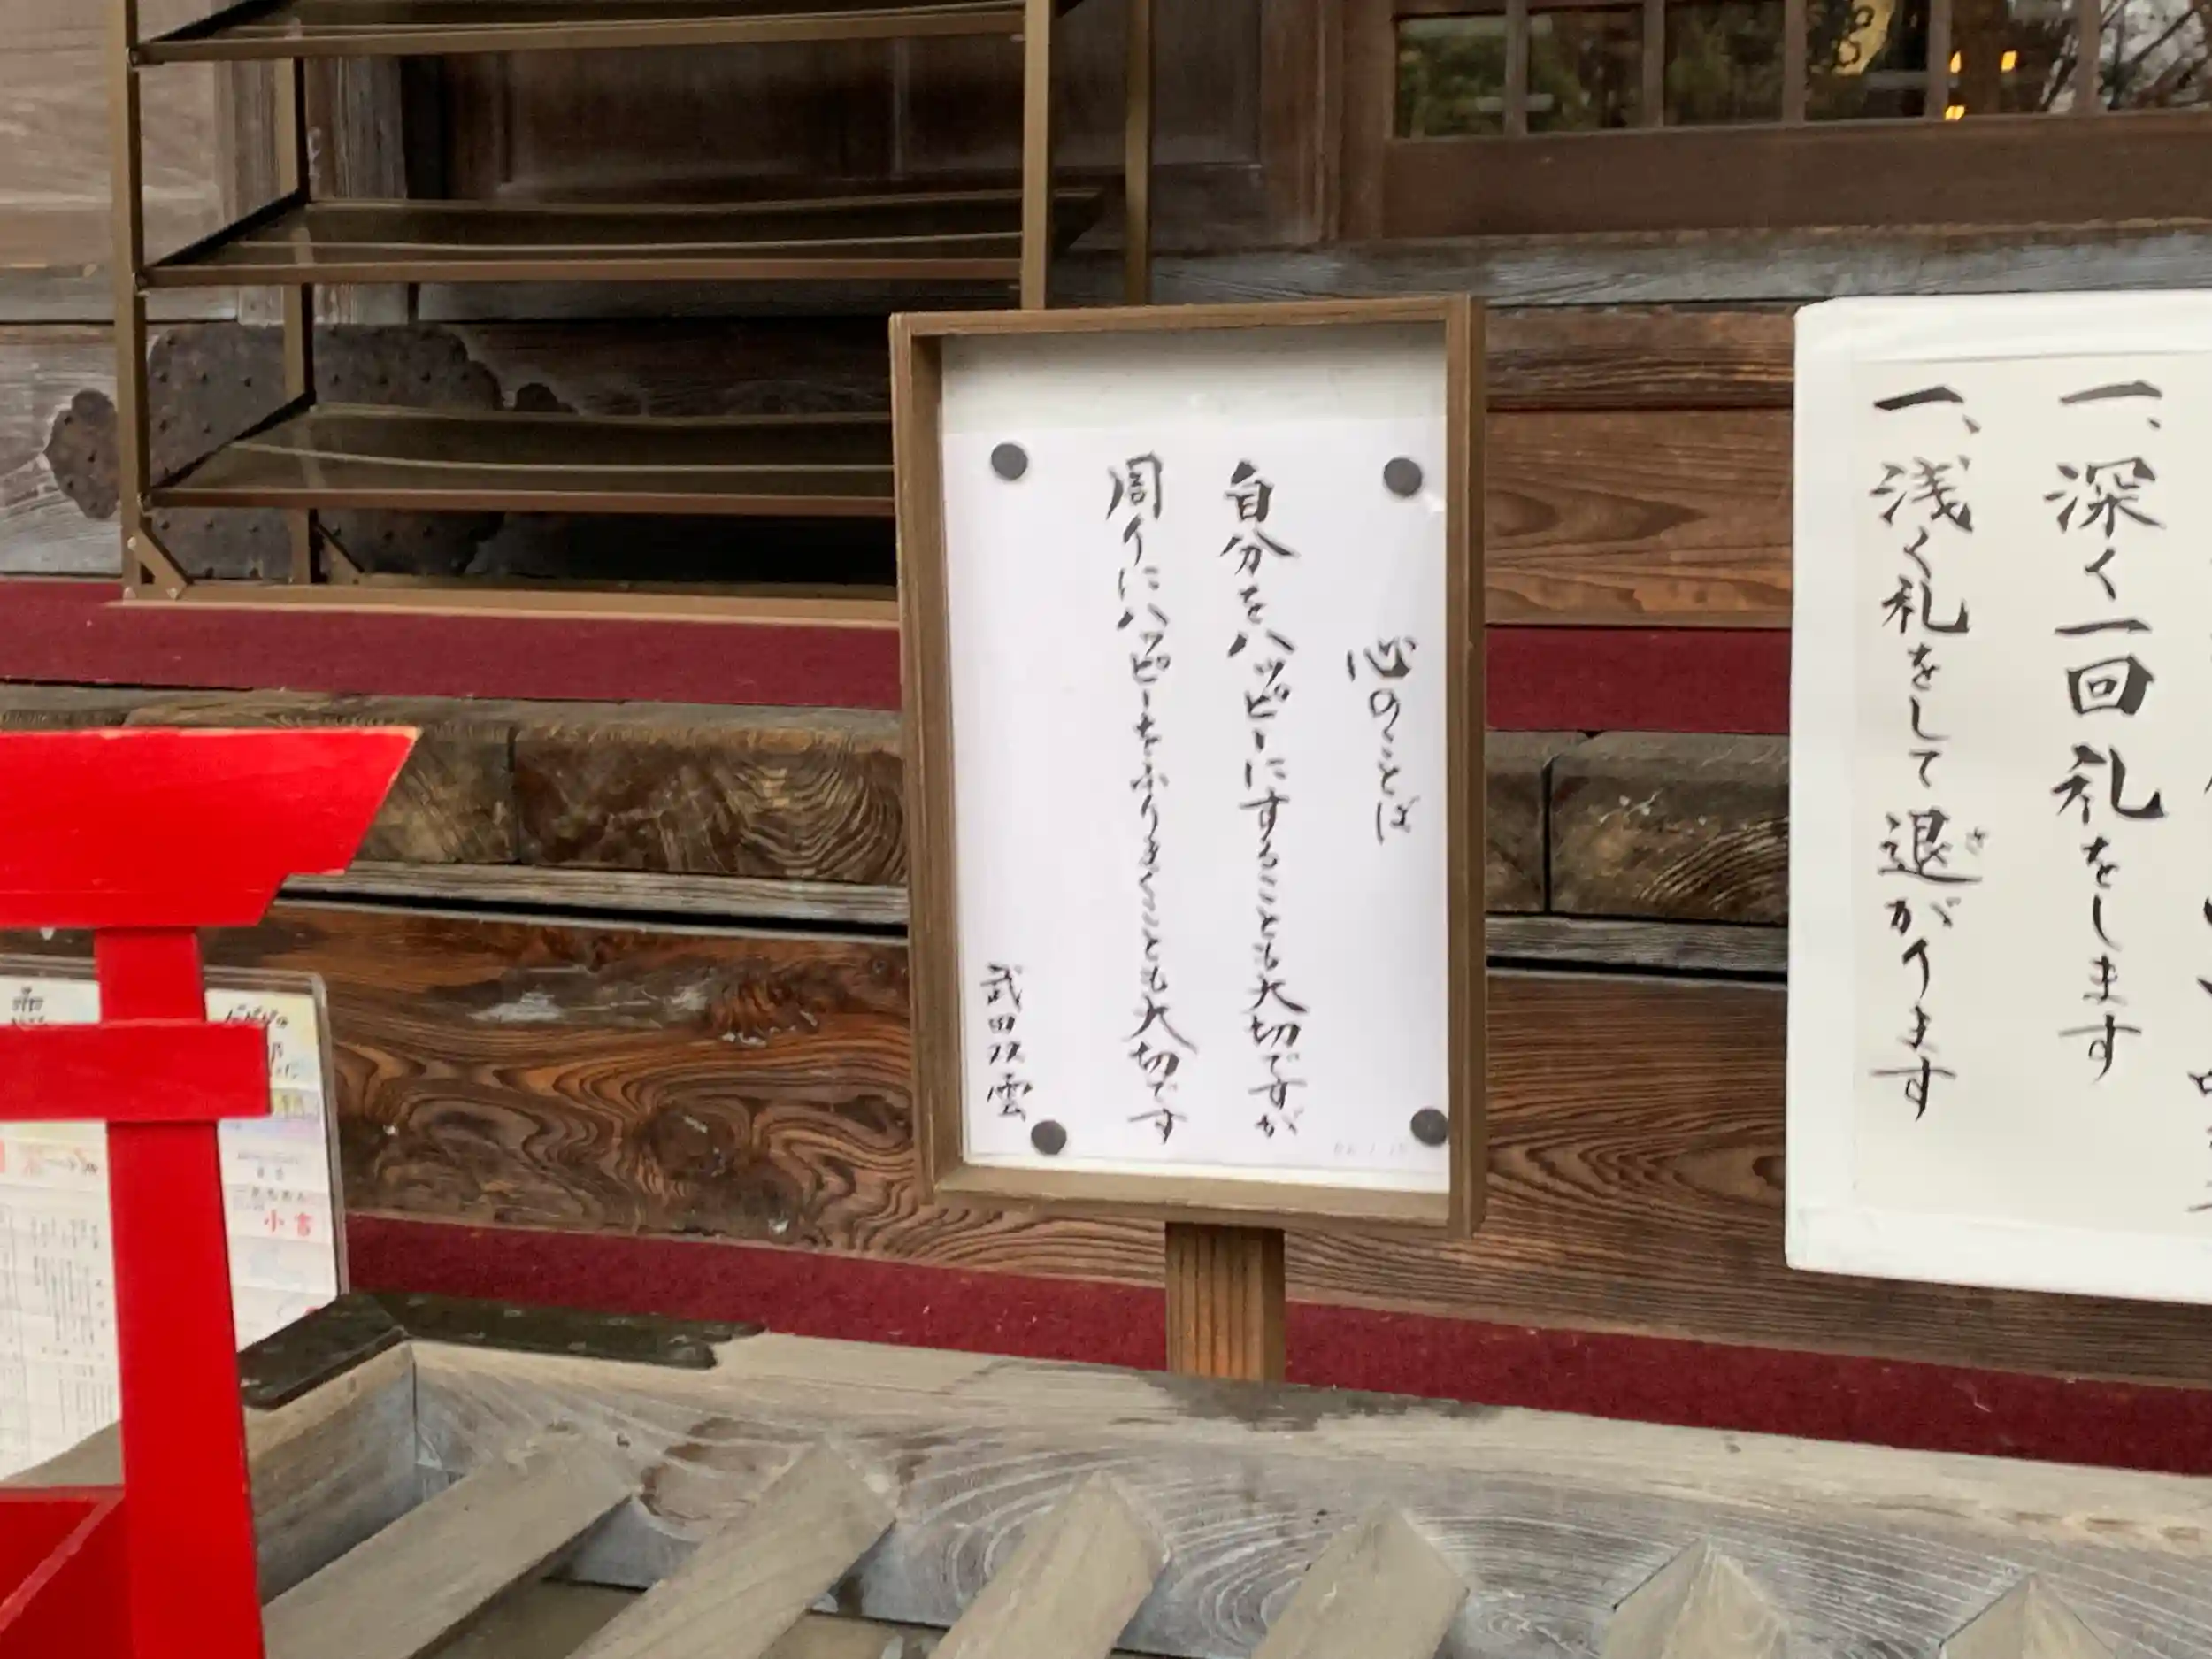 一、深く一回礼をします
一、浅く礼をして退がります
さ
心のことば
自分をハッピーにすることも大切ですが
周りにハッピーをふりまくことも大切です
武田双雲
小吉